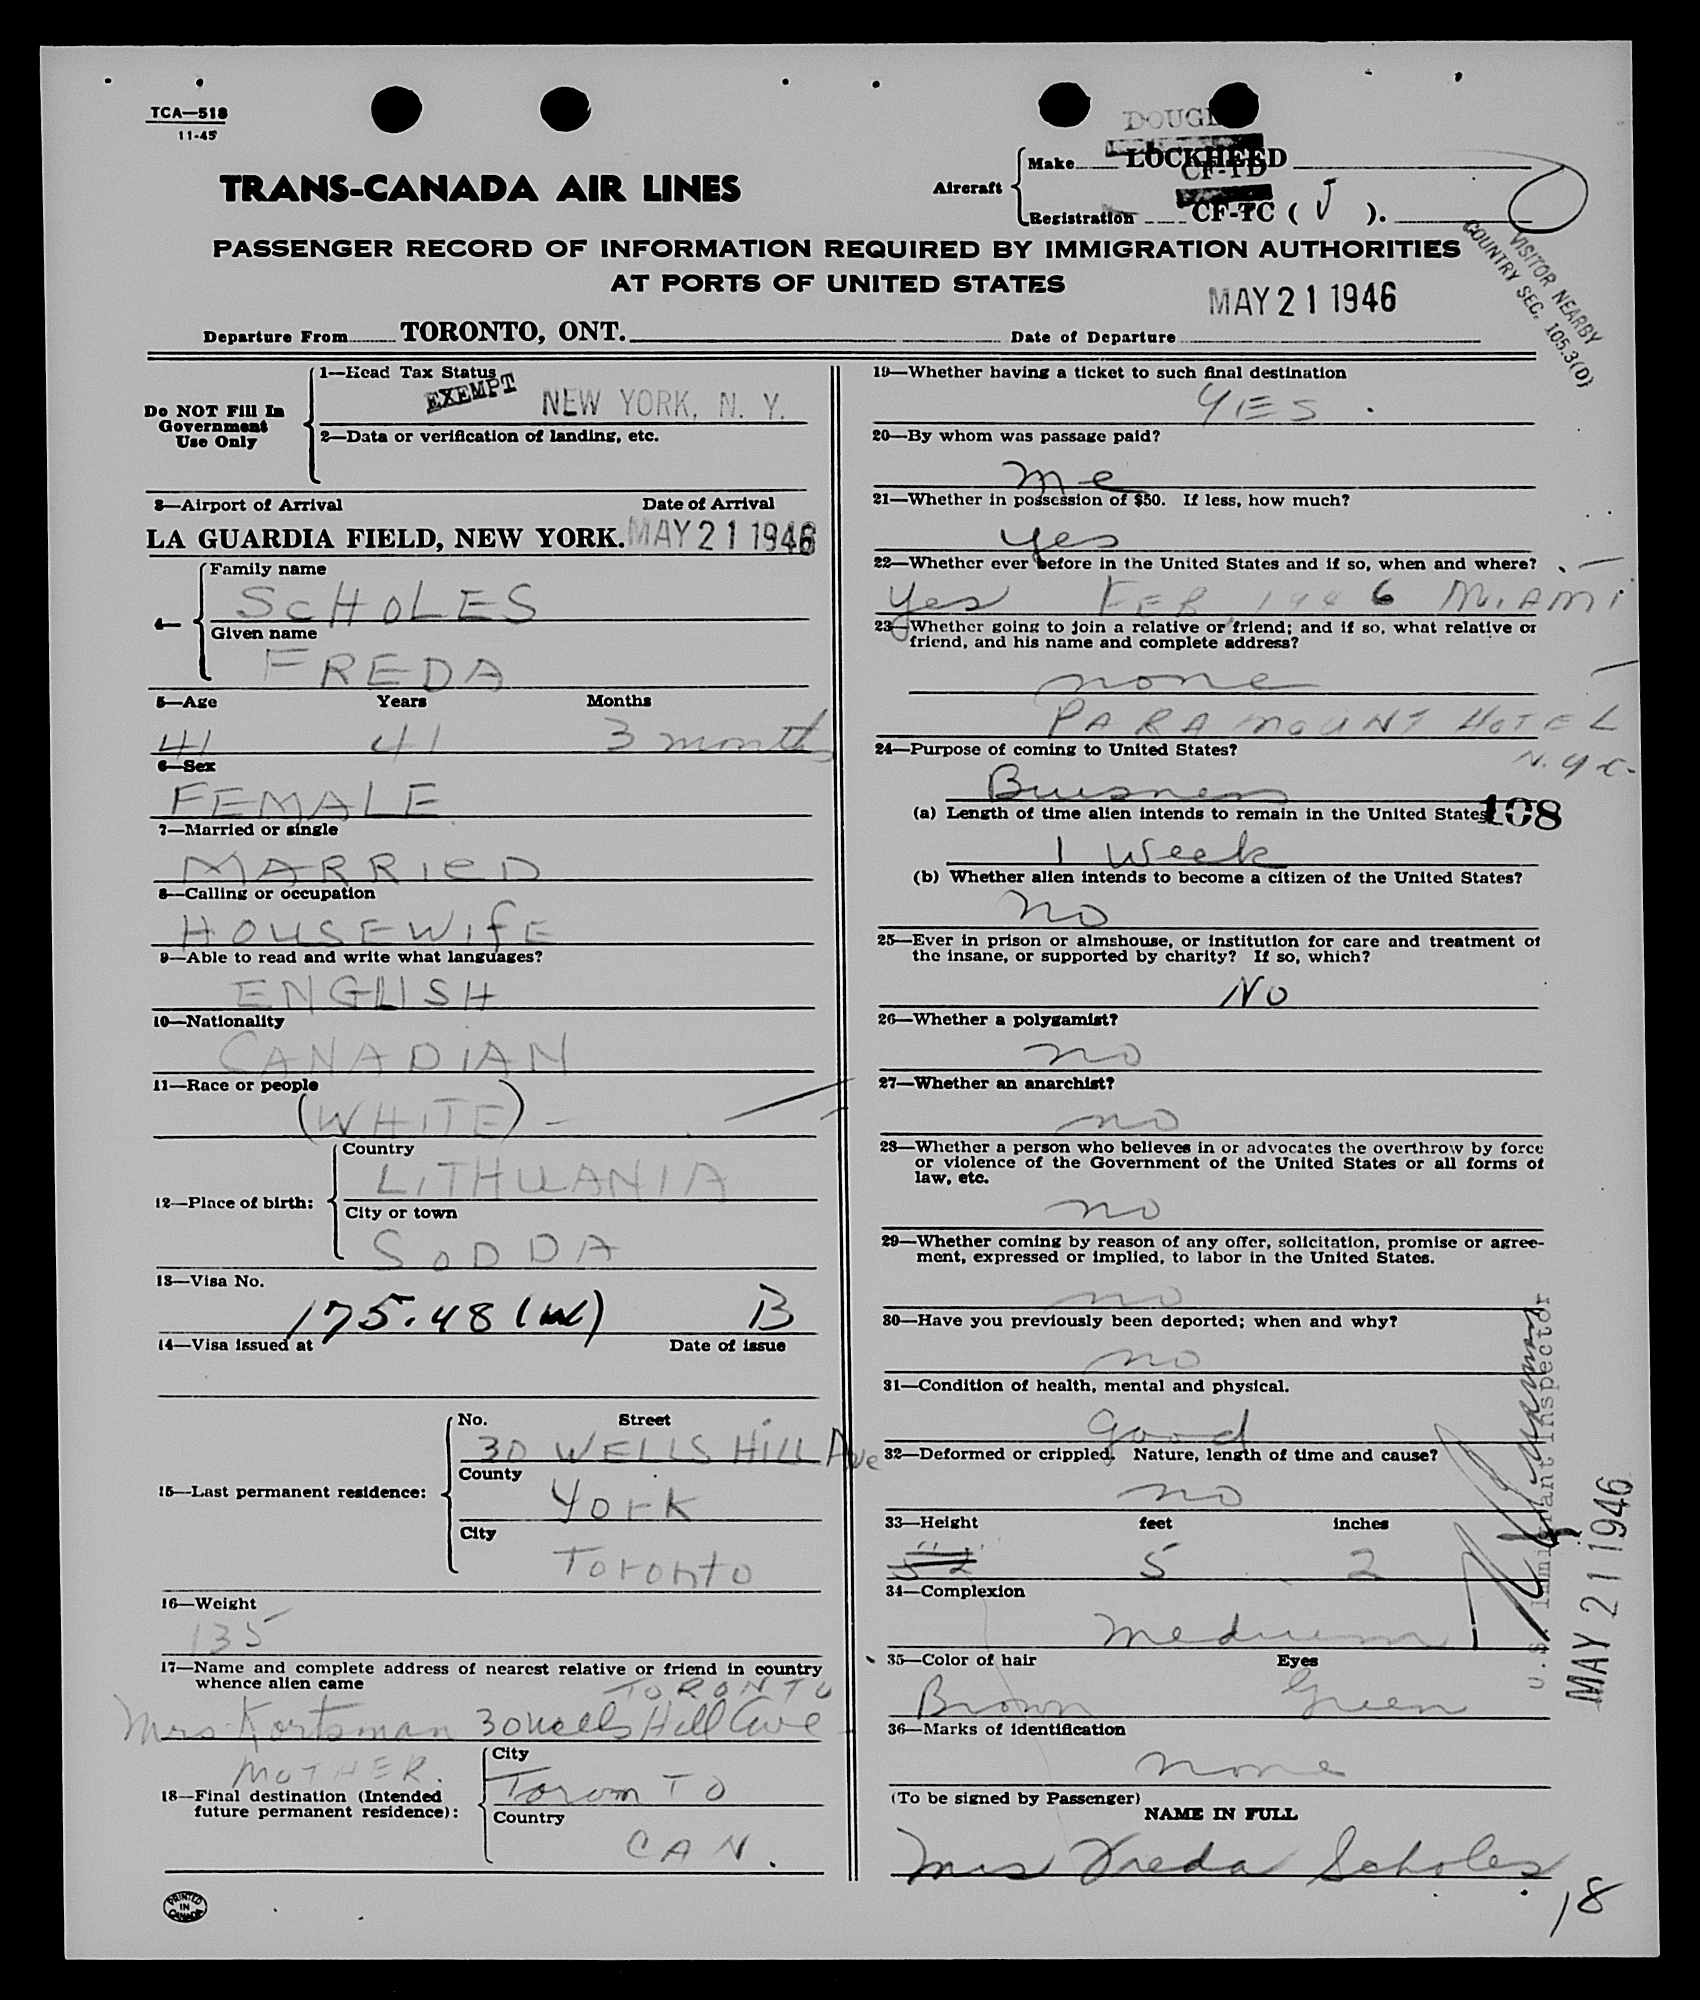 TCA—518
11-45
DOUGL
TRANS-CANADA AIR LINES
Aircraft
Make LOCKHEED
CF-TD
Registration CF-TC ( J ).
PASSENGER RECORD OF INFORMATION REQUIRED BY IMMIGRATION AUTHORITIES
AT PORTS OF UNITED STATES
VISITOR NEARBY
COUNTRY SEC. 105.3(D)
MAY 21 1946
Departure From TORONTO, ONT.
Date of Departure
Do NOT Fill In
Government
Use Only
1—Head Tax Status
EXEMPT NEW YORK, N. Y.
2—Data or verification of landing, etc.
3—Airport of Arrival Date of Arrival
LA GUARDIA FIELD, NEW YORK. MAY 21 1946
4—
Family name
SCHOLES
Given name
FREDA
5—Age Years Months
41 41 3 months
6—Sex
FEMALE
7—Married or single
MARRIED
8—Calling or occupation
HOUSEWIfE
9—Able to read and write what languages?
ENGLISH
10—Nationality
CANADIAN
11—Race or people
(WHITE) –
12—Place of birth:
Country
LITHUANIA
City or town
SODDA
13—Visa No.
175.48 B
14—Visa issued at Date of issue
15—Last permanent residence:
No. Street
30 WELLS HILL Ave
County
York
City
Toronto
16—Weight
135
17—Name and complete address of nearest relative or friend in country
whence alien came
TORONTO
Mrs. Kortsman 30 Wells Hill Ave
MOTHER.
18—Final destination (Intended
future permanent residence):
City
Toronto
Country
CAN.
PRINTED
IN
CANADA
19—Whether having a ticket to such final destination
YES .
20—By whom was passage paid?
me
21—Whether in possession of $50. If less, how much?
yes
22—Whether ever before in the United States and if so, when and where?
Yes FEB 1946 MIAMI
23—Whether going to join a relative or friend; and if so, what relative or
friend, and his name and complete address?
none
PARAMOUNT HOTEL
N.Y.C.
24—Purpose of coming to United States?
Buisness
(a) Length of time alien intends to remain in the United States?
108
1 Week
(b) Whether alien intends to become a citizen of the United States?
no
25—Ever in prison or almshouse, or institution for care and treatment of
the insane, or supported by charity? If so, which?
No
26—Whether a polygamist?
no
27—Whether an anarchist?
no
28—Whether a person who believes in or advocates the overthrow by force
or violence of the Government of the United States or all forms of
law, etc.
no
29—Whether coming by reason of any offer, solicitation, promise or agree-
ment, expressed or implied, to labor in the United States.
no
30—Have you previously been deported; when and why?
no
31—Condition of health, mental and physical.
Good
32—Deformed or crippled. Nature, length of time and cause?
no
33—Height feet inches
5 2 5 2
34—Complexion
medium
35—Color of hair Eyes
Brown Green
36—Marks of identification
none
(To be signed by Passenger)
NAME IN FULL
Mrs Freda Scholes
18
U.S. Immigrant Inspector
MAY 21 1946